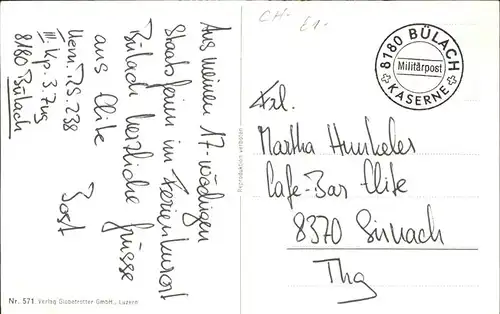 Aus meinen 17-wöchigen
Staatsferien im Ferienkurort
Bülach herzliche Grüsse
aus Elite
Uem. RS. 238
III. Kp. 3. Zug
8180 Bülach
CH-
£1-
8180 BÜLACH
Militärpost
KASERNE
Frl.
Martha Hunkeler
Cafe-Bar Elite
8370 Sirnach
Thg
Reproduktion verboten
Nr. 571. Verlag Globetrotter GmbH., Luzern